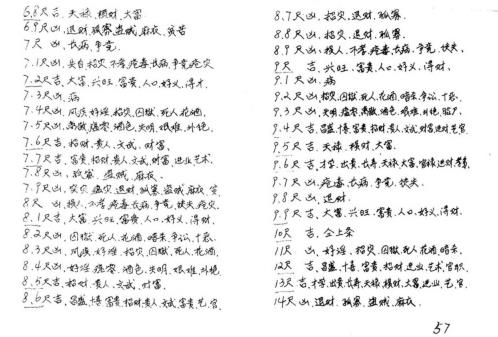 6.8尺吉、天禄、横财、大富
6.9尺凶、退财、孤寡、盗贼、麻衣、哭苦
7尺 凶、长病、争竞、
7.1尺凶、失白招灾、不孝疟毒、长病、争竞、疟灾
7.2尺吉、大富、兴旺、富贵、人口、好义、得才、
7.3尺凶、病
7.4尺凶、风疾、好淫、招灾、囚狱、死人、花酒、
7.5尺凶、离散、瘟零、酒色、失明、艰难、外绝、
7.6尺吉、招财、贵人、文武、财富、
7.7尺吉、富贵、招财、贵人、文武、财富、进业、艺术、
7.8尺凶、孤寡、盗贼、麻衣、
7.9尺凶、灾、瘟灾、退财、孤寡、盗贼、麻衣、
8尺 凶、横人、不孝、疟毒、长病、争竞、疟灾、
8.1尺吉、大富、兴旺、富贵、人口、好义、得财、
8.2尺凶、囚狱、死人、花酒、暗来、争讼、十恶、
8.3尺凶、风疾、好淫、招灾、囚狱、死人、花酒、
8.4尺凶、好淫、瘟零、酒色、失明、艰难、外绝、
8.5尺吉、招财、贵人、文武、财富、
8.6尺吉、昌盛、博喜、富贵、招财、贵人、文武、富贵、艺、官、
8.7尺凶、招灾、退财、孤寡、
8.8尺凶、招灾、退财、孤寡、
8.9尺凶、横人、不孝、疟毒、长病、争竞、快失、
9尺 吉、兴旺、富贵、人口、好义、得财、
9.1尺凶、病
9.2尺凶、招灾、囚狱、死人、花酒、暗来、争讼、十恶、
9.3尺凶、失明、瘟零、离散、酒色、艰难、外绝、
9.4尺吉、昌盛、博喜、富贵、招财、贵人、文武、财富、进业、艺、官、
9.5尺吉、天禄、横财、大富、
9.6尺吉、才学、出贵、长寿、天禄、大富、官禄、进财、
9.7尺凶、疟毒、长病、争竞、快失、
9.8尺凶、退财、
9.9尺吉、大富、兴旺、富贵、人口、好义、得财、
10尺 吉、仝上条
11尺 凶、好淫、招灾、囚狱、死人、花酒、暗来、
12尺 吉、昌盛、博喜、富贵、招财、进业、艺术、官职、
13尺吉、才学、出贵、长寿、天禄、横财、大富、进业、艺、官、
14尺凶、退财、孤寡、盗贼、麻衣、
57